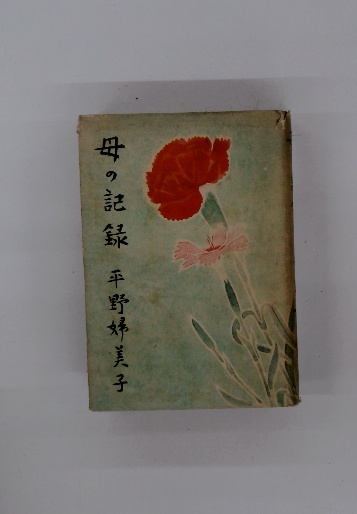 母の記録
平野婦美子